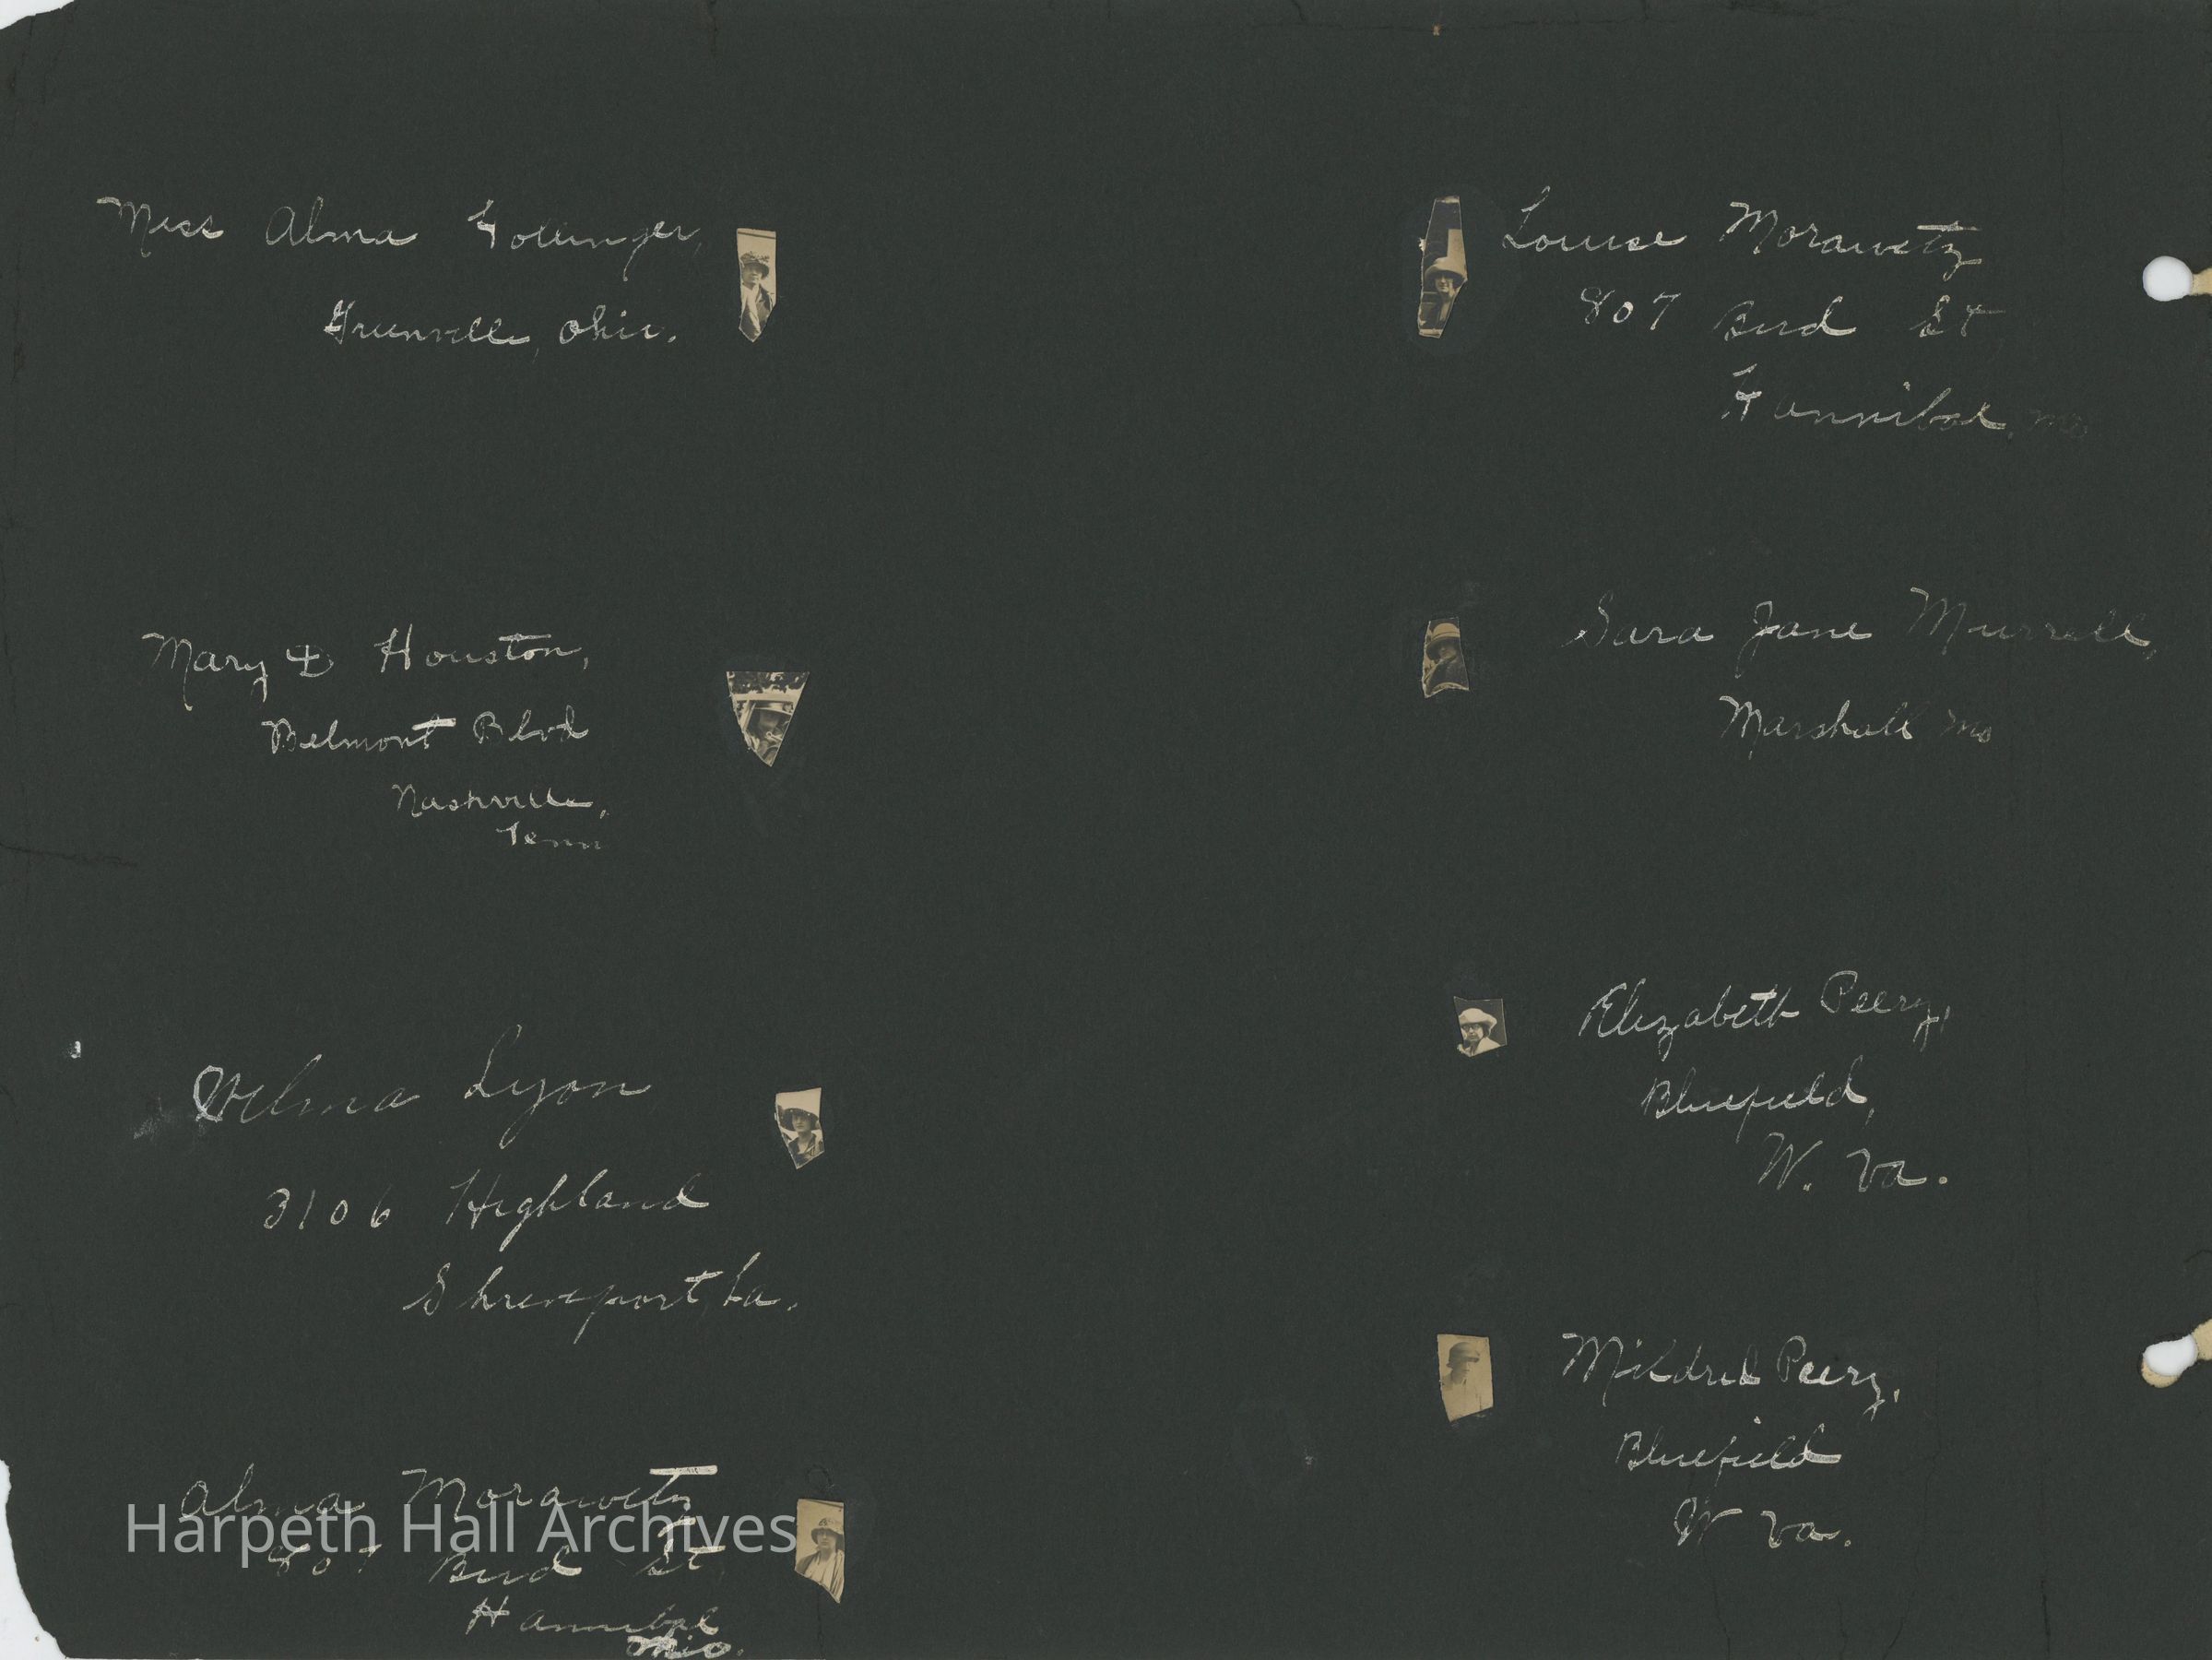 Miss Alma Hollinger,
Greenville, Ohio.
Mary D Houston,
Belmont Blvd
Nashville,
Tenn
Velma Lyon
3106 Highland
Shreveport, La.
Alma Morawetz
807 Bird St,
Hannibal
Ohio.
Louise Morawetz
807 Bird St
Hannibal, Mo
Sara Jane Murrell,
Marshall Mo
Elizabeth Peery,
Bluefield,
W. Va.
Mildred Peery,
Bluefield
W Va.
Harpeth Hall Archives